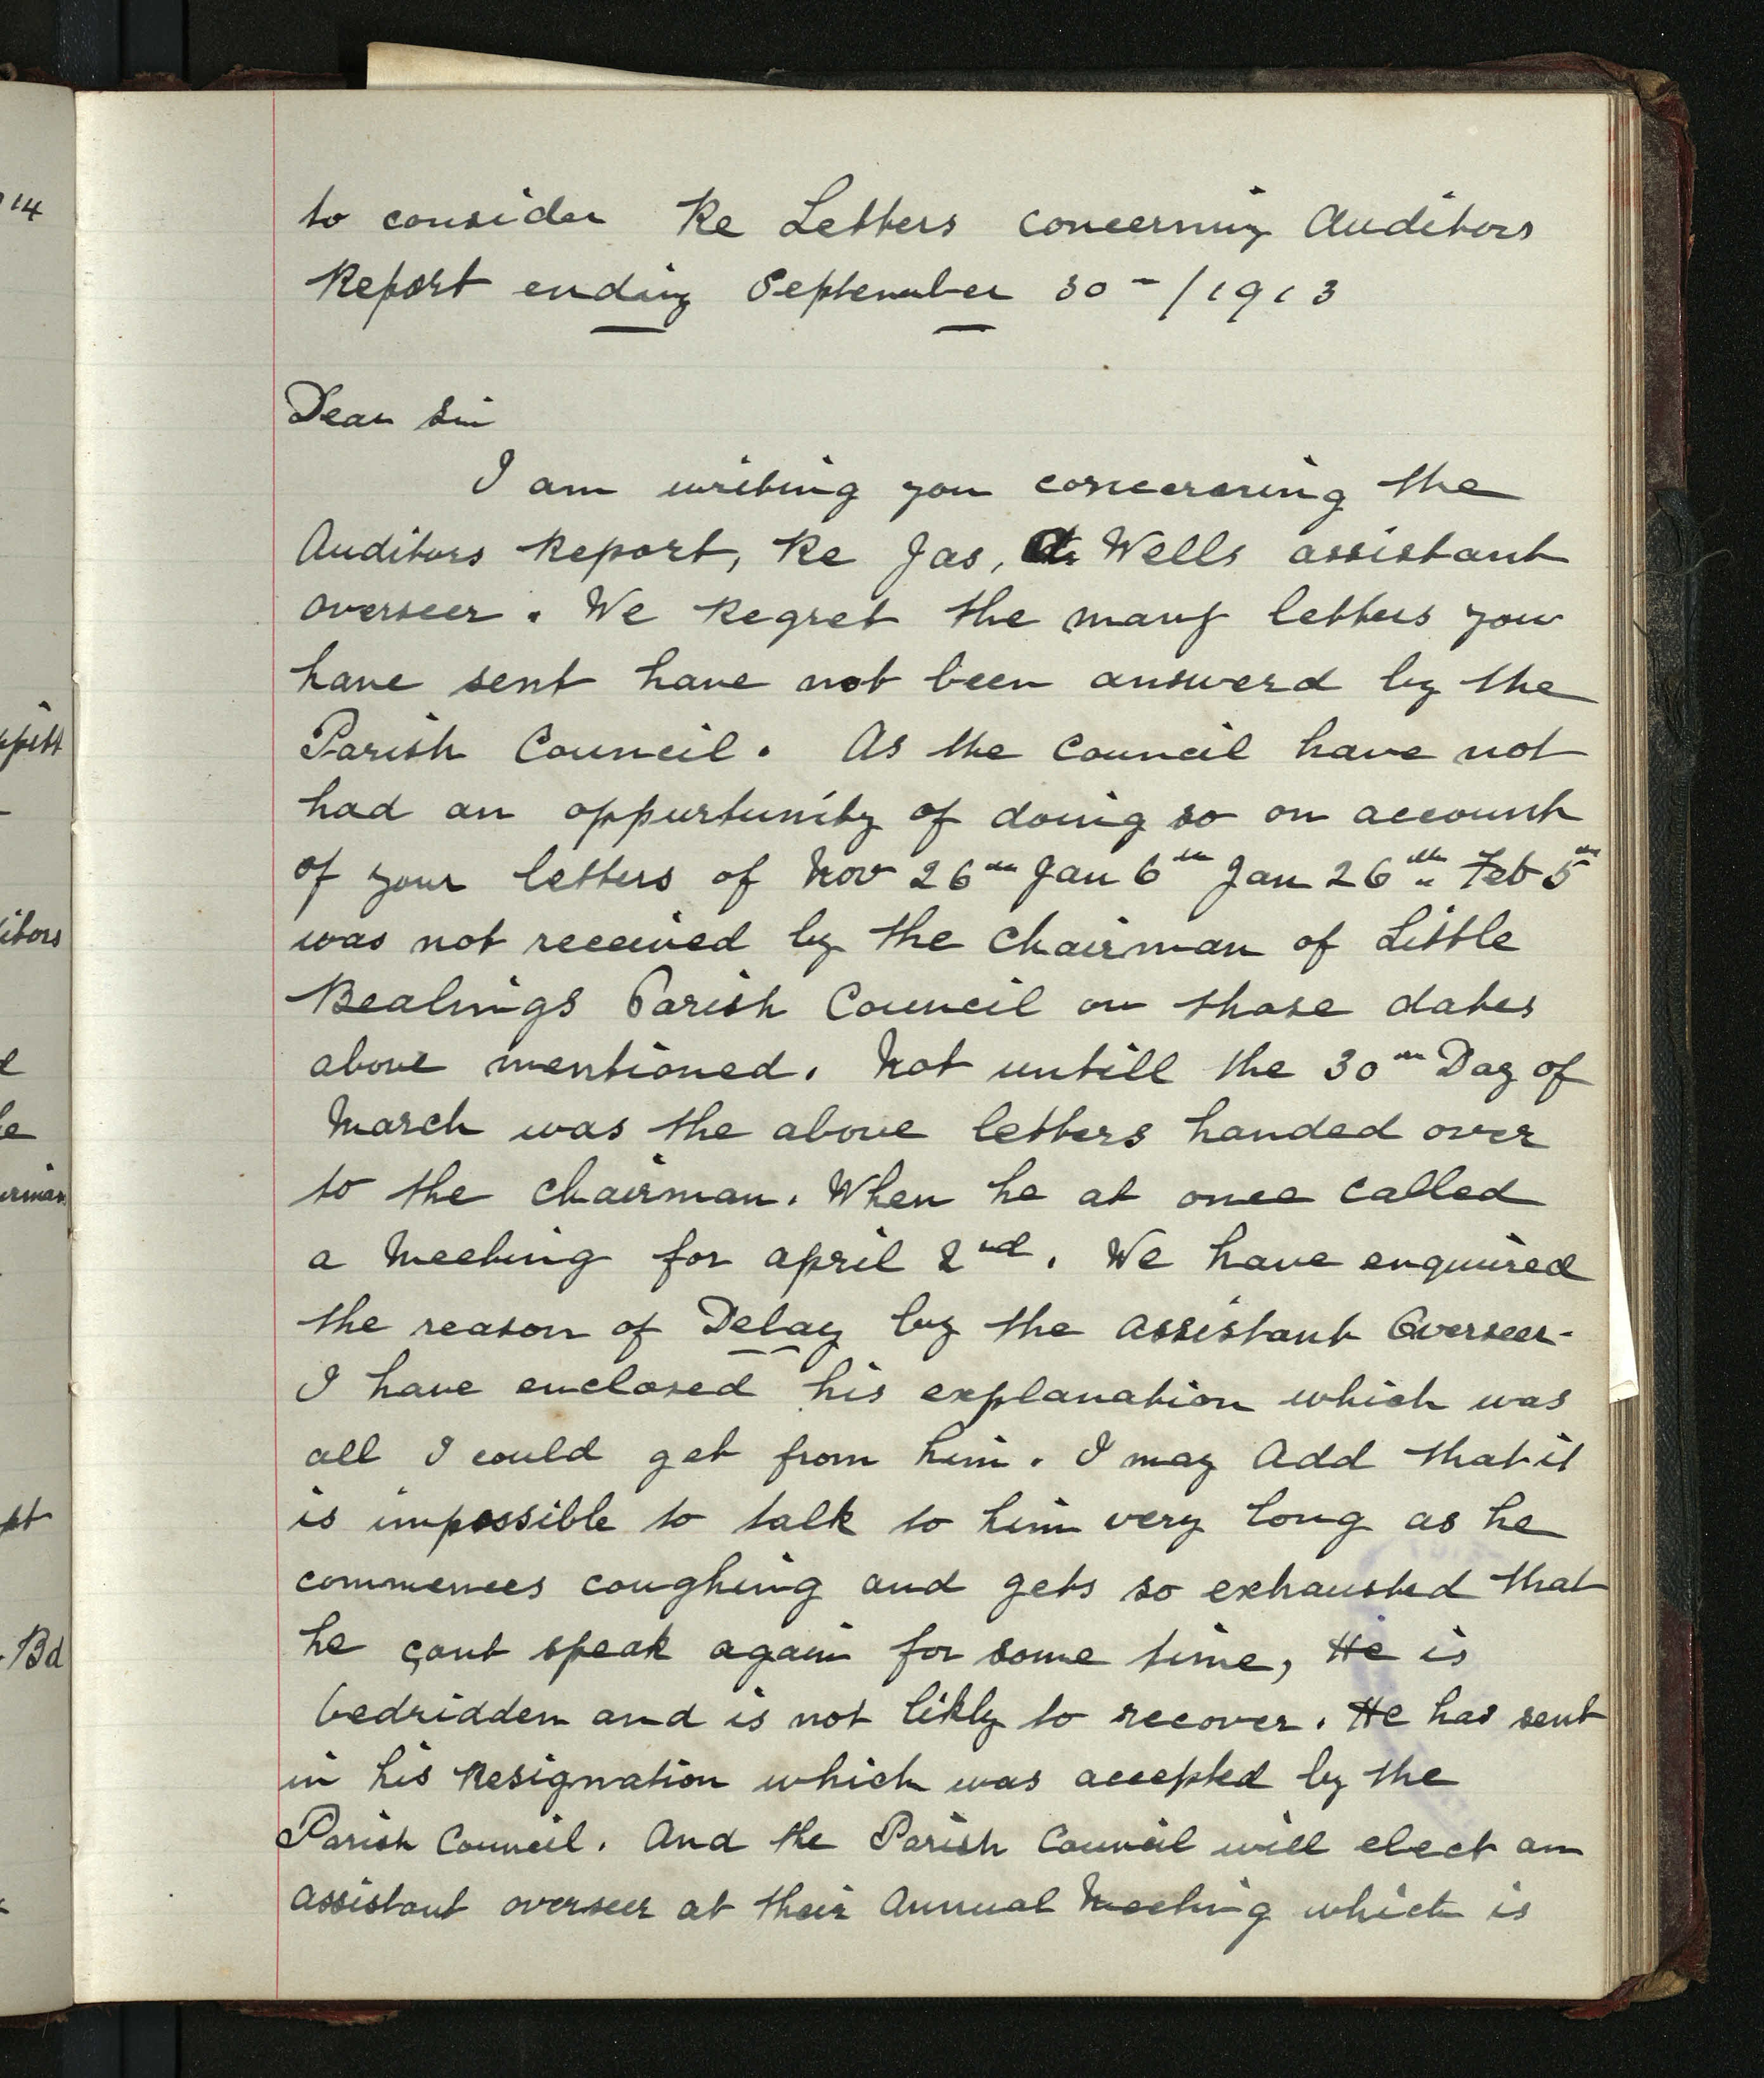 to consider Re Letters concerning Auditors
Report ending September 30 - / 1913
Dear Sir
I am writing you concerning the
Auditors Report, Re Jas, Wells assistant
overseer. We Regret the many letters you
have sent have not been answerd by the
Parish Council. As the Council have not
had an oppurtunity of doing so on account
of your letters of Nov 26th Jan 6th Jan 26th Feb 5th
was not received by the Chairman of Little
Bealings Parish Council on those dates
above mentioned. Not untill the 30th Day of
March was the above letters handed over
to the Chairman. When he at once called
a Meeting for April 2nd. We have enquired
the reason of Delay by the Assistant Overseer.
I have enclosed his explanation which was
all I could get from him. I may Add that it
is impossible to talk to him very long as he
commences coughing and gets so exhausted that
he cant speak again for some time, He is
bedridden and is not likly to recover. He has sent
in his Resignation which was accepted by the
Parish Council. And the Parish Council will elect an
Assistant overseer at their Annual Meeting which is
14
itors
Bd